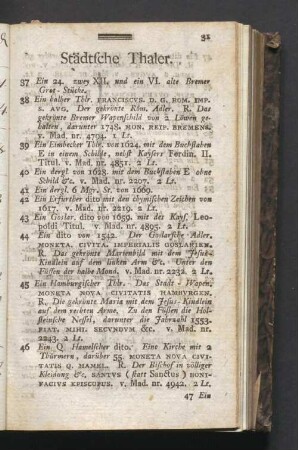 31
Städtsche Thaler.
37 Ein 24. zwey XII. und ein VI. alte Bremer
Grot-Stücke.
38 Ein halber Thlr. FRANCISCVS. D. G. ROM. IMP.
S. AVG. Der gekrönte Röm. Adler. R. Das
gekrönte Bremer Wapenschild von 2 Löwen ge-
halten, darunter 1748. MON. REIP. BREMENS.
v. Mad. nr. 4704. 1 Lt.
39 Ein Eimbecker Thlr. von 1624. mit dem Buchstaben
E in einem Schilde, nebst Kaysers Ferdin. II.
Titul. v. Mad. nr. 4851. 2 Lt.
40 Ein dergl von 1628. mit dem Buchstaben E ohne
Schild &c. v. Mad. nr. 2207. 2 Lt.
41 Ein dergl. 6 Mgr. St. von 1669.
42 Ein Erfurther dito mit den chymischen Zeichen von
1617. v. Mad. nr. 2219. 2 Lt.
43 Ein Goslar. dito von 1659. mit des Kays. Leo-
poldi Titul. v. Mad. nr. 4895. 2 Lt.
44 Ein dito von 1542. Der Goslarsche Adler.
MONETA. CIVITA. IMPERIALIS GOSLARIEN.
R. Das gekrönte Marienbild mit dem Jesus-
Kindlein auf dem linken Arm &c. Unter den
Füssen der halbe Mond. v. Mad. nr. 2231. 2 Lt.
45 Ein Hamburgischer Thlr. Das Stadt-Wapen.
MONETA NOVA CIVITATIS HAMBVRGEN.
R. Die gekrönte Maria mit dem Jesus-Kindlein
auf dem rechten Arme, Zu den Füssen die Hol-
steinsche Nessel, darunter die Jahrzahl 1553.
FIAT. MIHI. SECVNDVM &c. v. Mad. nr.
2243. 2 Lt.
46 Ein Q. Hamelscher dito. Eine Kirche mit 2
Thürmern, darüber 55. MONETA NOVA CIVI-
TATIS Q. HAMEL. R. Der Bischof in völliger
Kleidung &c. SANTVS (statt Sanctus) BONI-
FACIVS EPISCOPUS. v. Mad. nr. 4942. 2 Lt.
47 Ein